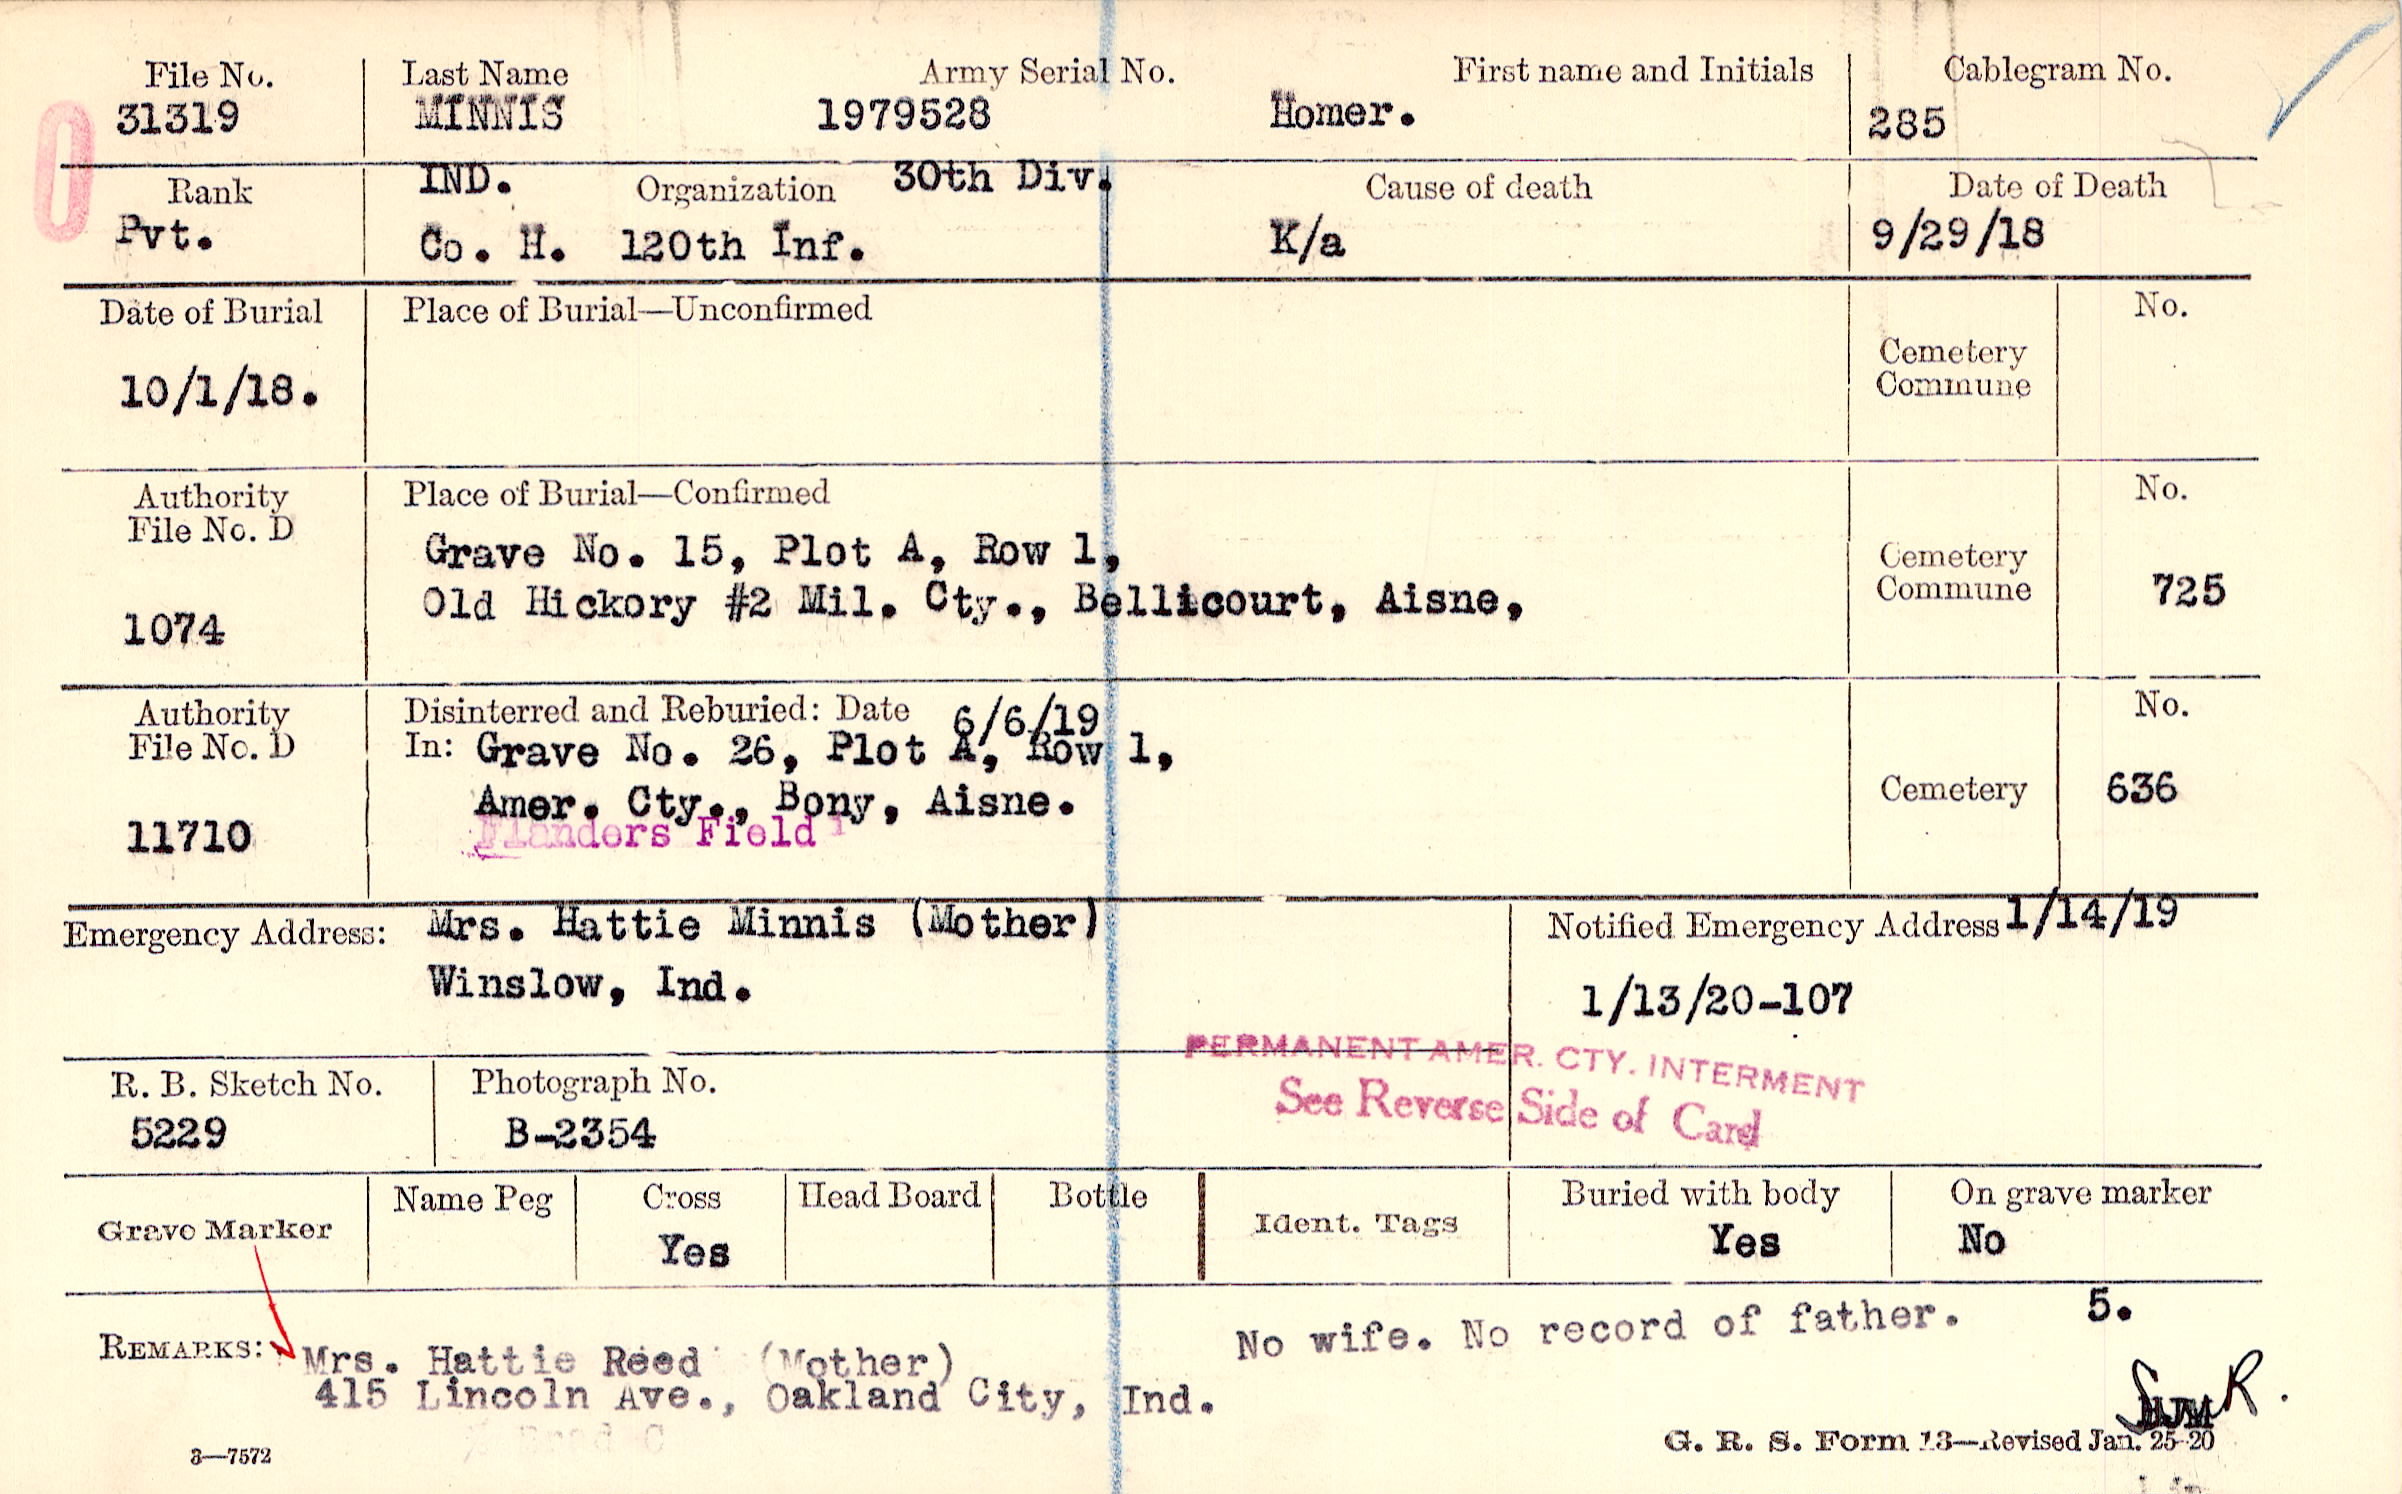 File No. Last Name Army Serial No. First name and Initials Cablegram No.
31319 MINNIS 1979528 Homer. 285
Rank IND. Organization 30th Div. Cause of death Date of Death
Pvt. Co. H. 120th Inf. K/a 9/29/18
Date of Burial Place of Burial—Unconfirmed No.
10/1/18. Cemetery
Commune
Authority Place of Burial—Confirmed No.
File No. D
Grave No. 15, Plot A, Row 1, Cemetery
1074 Old Hickory #2 Mil. Cty., Bellicourt, Aisne, Commune 725
Authority Disinterred and Reburied: Date 6/6/19 No.
File No. D In: Grave No. 26, Plot A, Row 1,
Amer. Cty., Bony, Aisne. Cemetery 636
11710 Flanders Field
Emergency Address: Mrs. Hattie Minnis (Mother) Notified Emergency Address 1/14/19
Winslow, Ind. 1/13/20-107
PERMANENT AMER. CTY. INTERMENT
See Reverse Side of Card
R. B. Sketch No. Photograph No.
5229 B-2354
Grave Marker Name Peg Cross Head Board Bottle Ident. Tags Buried with body On grave marker
Yes Yes No
5.
REMARKS: Mrs. Hattie Reed (Mother) No wife. No record of father.
415 Lincoln Ave., Oakland City, Ind.
HJM
3—7572 G. R. S. Form 13—Revised Jan. 25-20